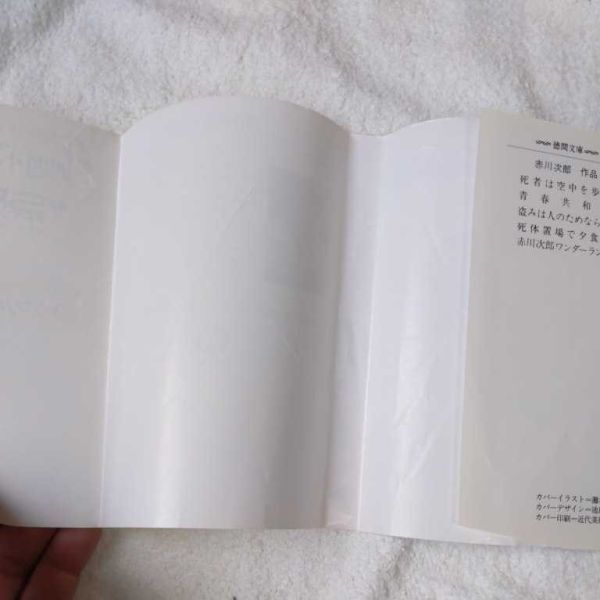 徳間文庫
赤川次郎 作品
死者は空中を歩
青春共和
盗みは人のためなら
死体置場で夕食
赤川次郎ワンダーラン
カバーイラスト=灘
カバーデザイン=池
カバー印刷=近代美